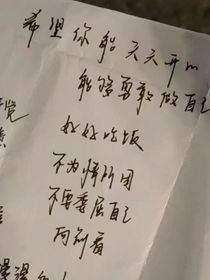 希望你能天天开心
能够勇敢做自己
好好吃饭
不为情所困
不要委屈自己
向前看